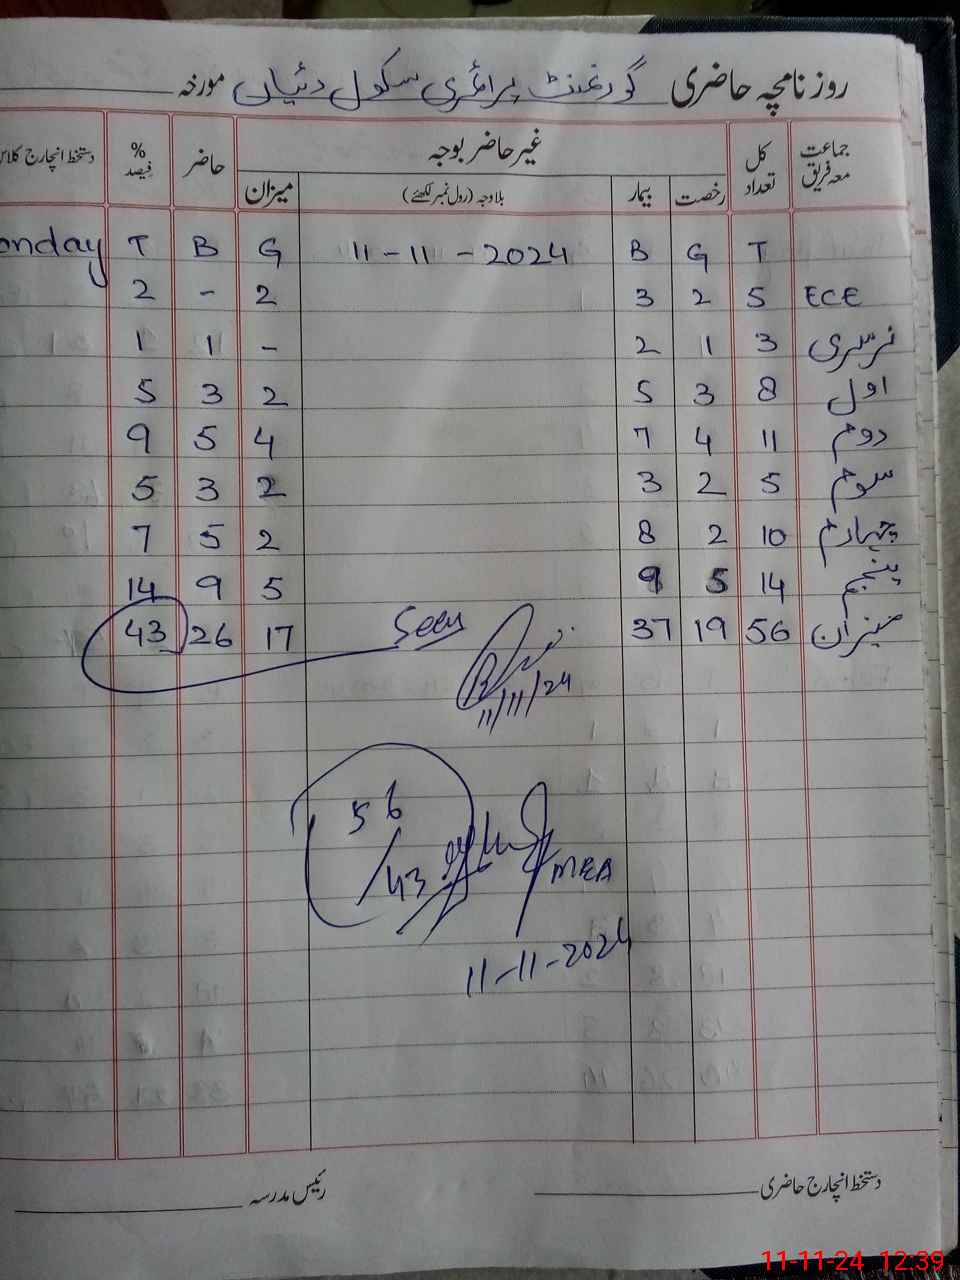 روزنامچہ حاضری گورنمنٹ پرائمری سکول دئیاں مورخہ
جماعت معہ فریق کل تعداد غیر حاضر بوجہ حاضر % فیصد دستخط انچارج کلاس
رخصت بیمار بلاوجہ (رول نمبر لکھئے) میزان
onday T B G 11-11-2024 B G T
2 - 2 3 2 5 ECE
1 1 - 2 1 3 نرسری
5 3 2 5 3 8 اول
9 5 4 7 4 11 دوم
5 3 2 3 2 5 سوم
7 5 2 8 2 10 چہارم
14 9 5 9 5 14 پنجم
43 26 17 37 19 56 میزان
Seen
11/11/24
56/43
MEA
11-11-2024
دستخط انچارج حاضری رئیس مدرسہ
11-11-24 12:39